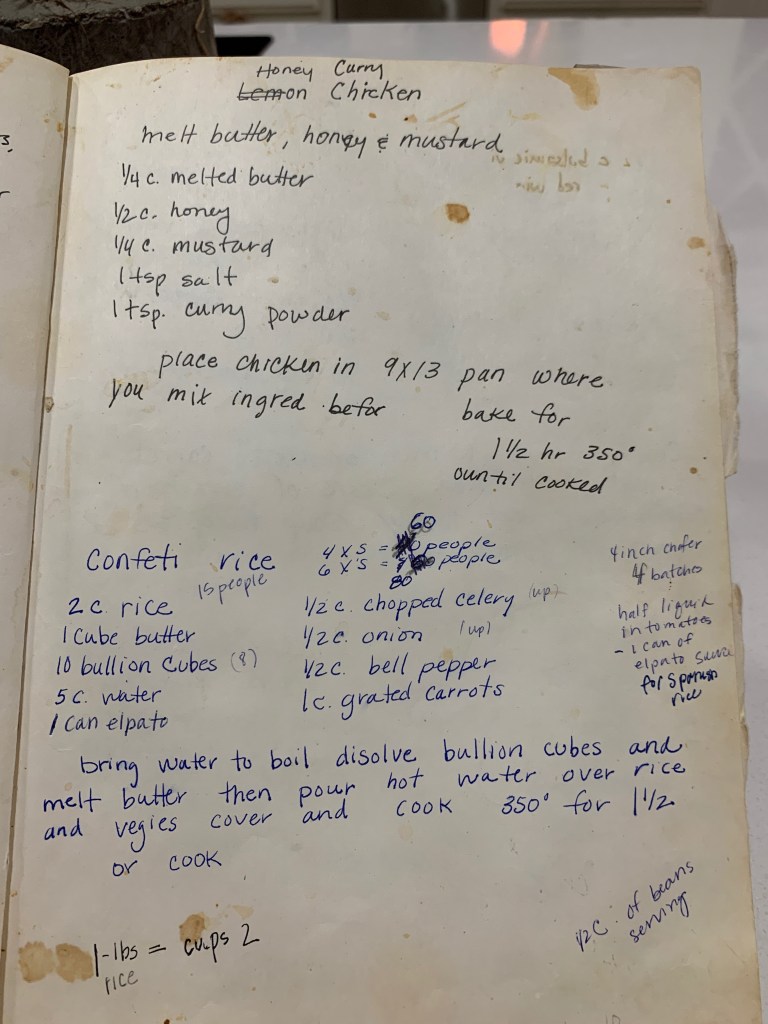 Honey Curry
Lemon Chicken
melt butter, honey & mustard
1/4 c. melted butter
1/2 c. honey
1/4 c. mustard
1 tsp salt
1 tsp. curry powder
place chicken in 9X13 pan where
you mix ingred befor
bake for
1 1/2 hr 350°
ountil cooked
Confeti rice
15 people
60
4 x's = people
6 x's = people
80
2 c. rice
1 Cube butter
10 bullion Cubes (8)
5 c. water
1 Can elpato
1/2 c. chopped celery (up)
1/2 c. onion (up)
1/2 c. bell pepper
1 c. grated carrots
4 inch chafer
4 batches
half liquid
in tomatoes
- 1 can of
elpato sauce
for Spanish
rice
bring water to boil disolve bullion cubes and
melt butter then pour hot water over rice
and vegies cover and cook 350° for 1 1/2
or cook
1-lbs = cups 2
rice
1/2 C. of beans
serving